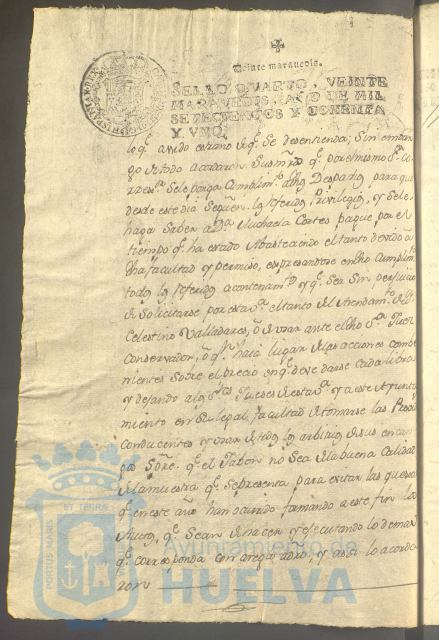 Veinte maravedis.
SELLO QUARTO, VEINTE
MARAVEDIS, AÑO DE MIL
SETECIENTOS Y OCHENTA
Y UNO.
lo qe. ha sido estraño qe. Se desentienda; Sin embar
go de todo acordaron Susmrds. qe. por el mismo
Sele ponga Cumplimto. a dho Despacho para que
desde este dia Seguen. los referidos Privilegios, y Sele
haga Saber a Da. Michaela Cortes pague por el
tiempo qe. ha estado Abasteciendo el tanto devido a
dha facultad y permiso, expresandose en dho Cumplimto.
todos los referidos y qe. Sea Sin perjuicio
de Solicitarse por esta Va. el tanto del Arrendamto. de Dn.
Celestino Valladares, o de usar ante el dho Sr. Juez
Conservador, o qe. haia lugar de las acciones combe
nientes Sobre el precio en qe. deve darse Cada libra
y dejando a los Sres. Jueses de esta Va. y a este Ayunta
miento en su legal facultad de tomarse las Provid
conducentes y usar de todos los arbitrios de sus encar
gos Sobre qe. el Jabon no Sea de la buena Calidad
de la muestra qe. Sepresenta para evitar las quexas
qe. en este año han ocurrido formando a este fin los
Autos qe. Sean de hacer y executando lo demas
qe. corresponda con arreglo a dro, y assi lo acorda
ron
Ayuntamiento de
HUELVA
PORTUS MARIS ET TERRE